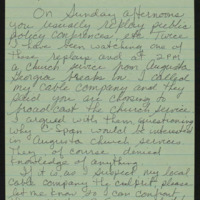 On Sunday afternoons
you usually replay public
policy conferences, etc. Twice
I have been watching one of
these replays and at 2 P.M.
a church service from Augusta
Georgia breaks in. I called
my cable company and they
said you are choosing to
broadcast the church service.
I argued with them questioning
why C-Span would be interested
in Augusta church services.
They, of course, denied
knowledge of anything.
If it is, as I suspect, my local
cable company the culprit, please
let me know so I can contact